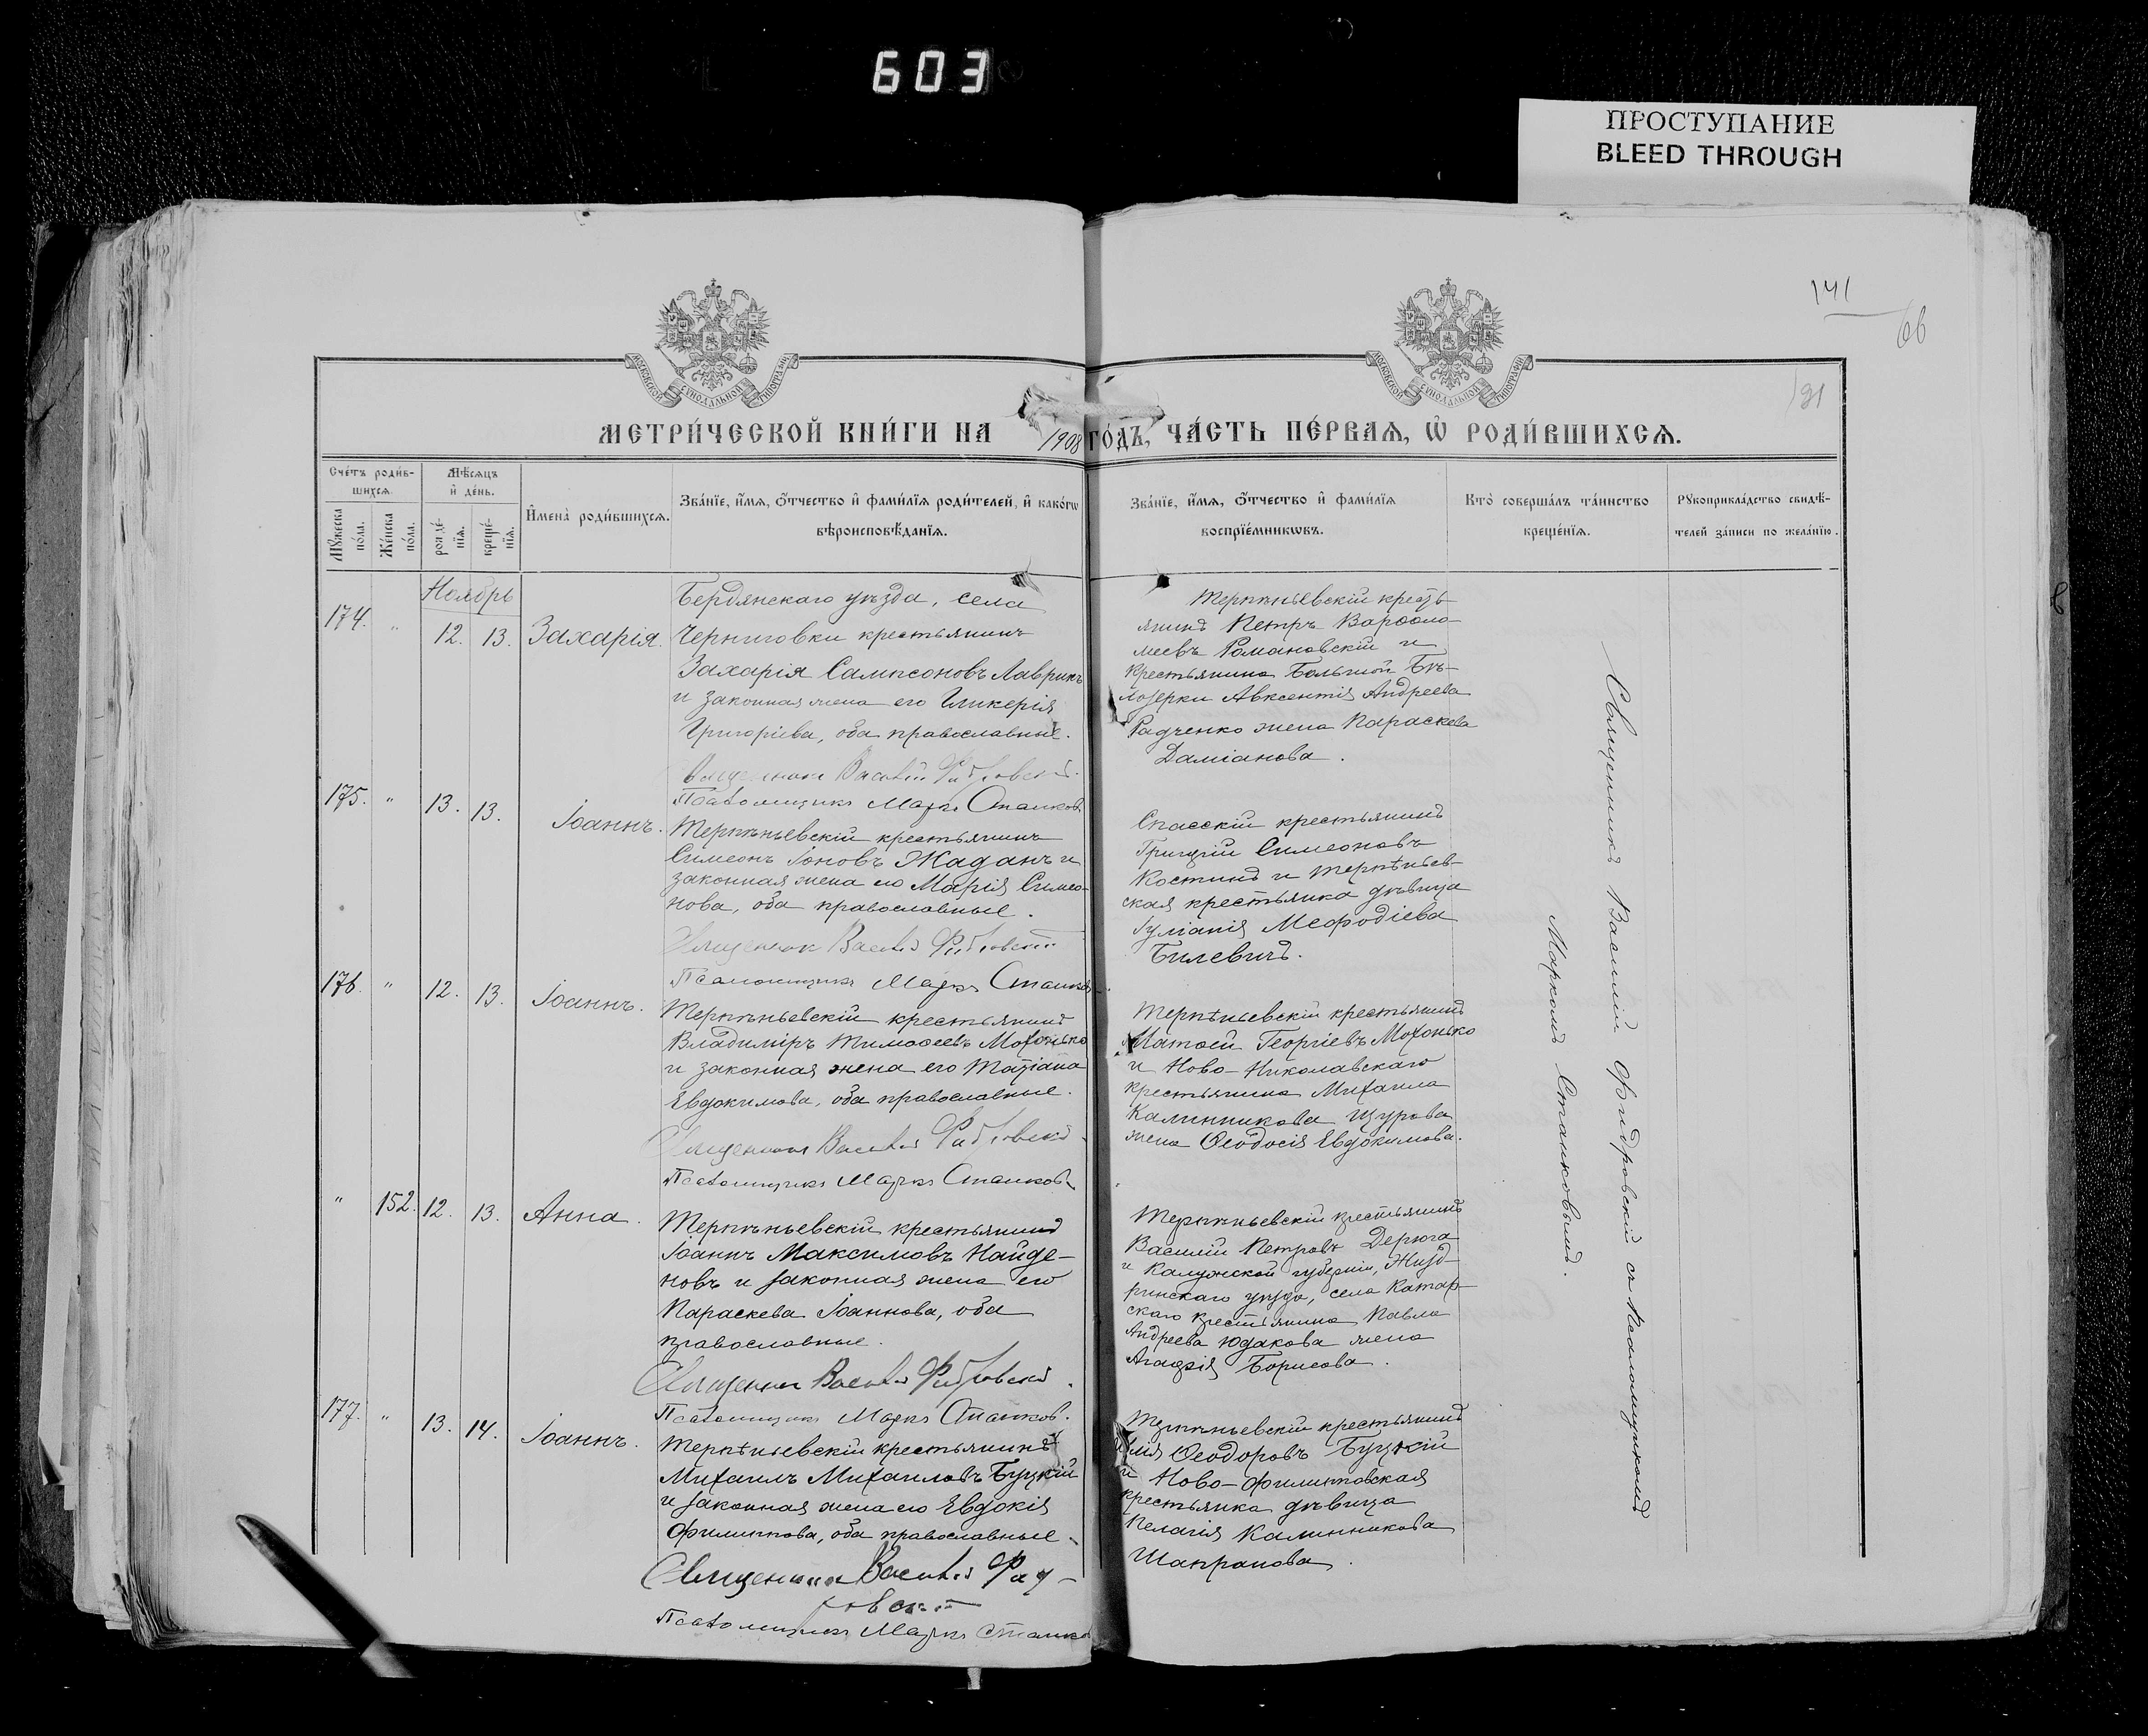 603
ПРОСТУПАНИЕ
BLEED THROUGH
141
66
191
МОСКОВСКОЙ СѴНОДАЛЬНОЙ ТИПОГРАФІИ
МОСКОВСКОЙ СѴНОДАЛЬНОЙ ТИПОГРАФІИ
МЕТРИ́ЧЕСКОЙ КНИ́ГИ НА 1908 ГО́ДЪ, ЧА́СТЬ ПЕ́РВАЯ, Ѿ РОДИ́ВШИХСЯ.
Сче́тъ роди́в-
шихся.
Мѣ́сяцъ
и҆ де́нь.
Мꙋ́жеска
по́ла.
Же́нска
по́ла.
рожде́-
нїя.
креще́-
нїя.
И҆мена̀ роди́вшихся.
Зва́нїе, и҆́мя, ѻ҆́тчество и҆ фами́лїя роди́телей, и҆ како́гѡ
вѣроисповѣ́данїя.
Зва́нїе, и҆́мя, ѻ҆́тчество и҆ фами́лїя
воспрїе́мникѡвъ.
Кто̀ соверша́лъ та́инство
креще́нїя.
Рꙋкоприкла́дство свидѣ́-
телей за́писи по жела́нїю.
Ноябрь
174. " 12. 13. Захарія.
Бердянскаго уѣзда, села
Черниговки крестьянинъ
Захарія Сампсоновъ Лаврикъ
и законная жена его Гликерія
Григоріева, оба православные.
Священникъ Василій Фидровскій.
Псаломщикъ Маркъ Станковъ
Терпѣньевскій кресть-
янинъ Петръ Варѳоло-
меевъ Романовскій и
крестьянина Большой Бѣ-
лозерки Авксентія Андреева
Радченко жена Параскева
Даміанова.
175. " 13. 13. Іоаннъ.
Терпѣньевскій крестьянинъ
Симеонъ Іоновъ Жаданъ и
законная жена его Марія Симео-
нова, оба православные.
Священникъ Василій Фидровскій
Псаломщикъ Маркъ Станковъ
Спасскій крестьянинъ
Григорій Симеоновъ
Костинъ и терпѣньев-
ская крестьянка дѣвица
Іуліанія Меѳодіева
Билевичъ.
176. " 12. 13. Іоаннъ.
Терпѣньевскій крестьянинъ
Владиміръ Тимоѳеевъ Мохонько
и законная жена его Татіана
Евдокимова, оба православные.
Священникъ Василій Фидровскій.
Псаломщикъ Маркъ Станковъ
Терпѣньевскій крестьянинъ
Матѳей Георгіевъ Мохонько
и Ново-Николаевскаго
крестьянина Михаила
Калинникова Щурова
жена Ѳеодосія Евдокимова.
" 152. 12. 13. Анна.
Терпѣньевскій крестьянинъ
Іоаннъ Максимовъ Найде-
новъ и законная жена его
Параскева Іоаннова, оба
православные.
Священникъ Василій Фидровскій.
Псаломщикъ Маркъ Станковъ.
Терпѣньевскій крестьянинъ
Василій Петровъ Дерюга
и Калужской губерніи, Жизд-
ринскаго уѣзда, села Катар-
скаго крестьянина Павла
Андреева Юдакова жена
Агаѳія Борисова.
177. " 13. 14. Іоаннъ.
Терпѣньевскій крестьянинъ
Михаилъ Михаиловъ Буцкій
и законная жена его Евдокія
Филиппова, оба православные.
Священникъ Василій Фид-
ровскій
Псаломщикъ Маркъ Станко
Терпѣньевскій крестьянинъ
Илія Ѳеодоровъ Буцкій
и Ново-Филипповская
крестьянка дѣвица
Пелагія Калинникова
Шапранова.
Священникъ Василій Фидровскій съ Псаломщикомъ
Маркомъ Станковымъ.